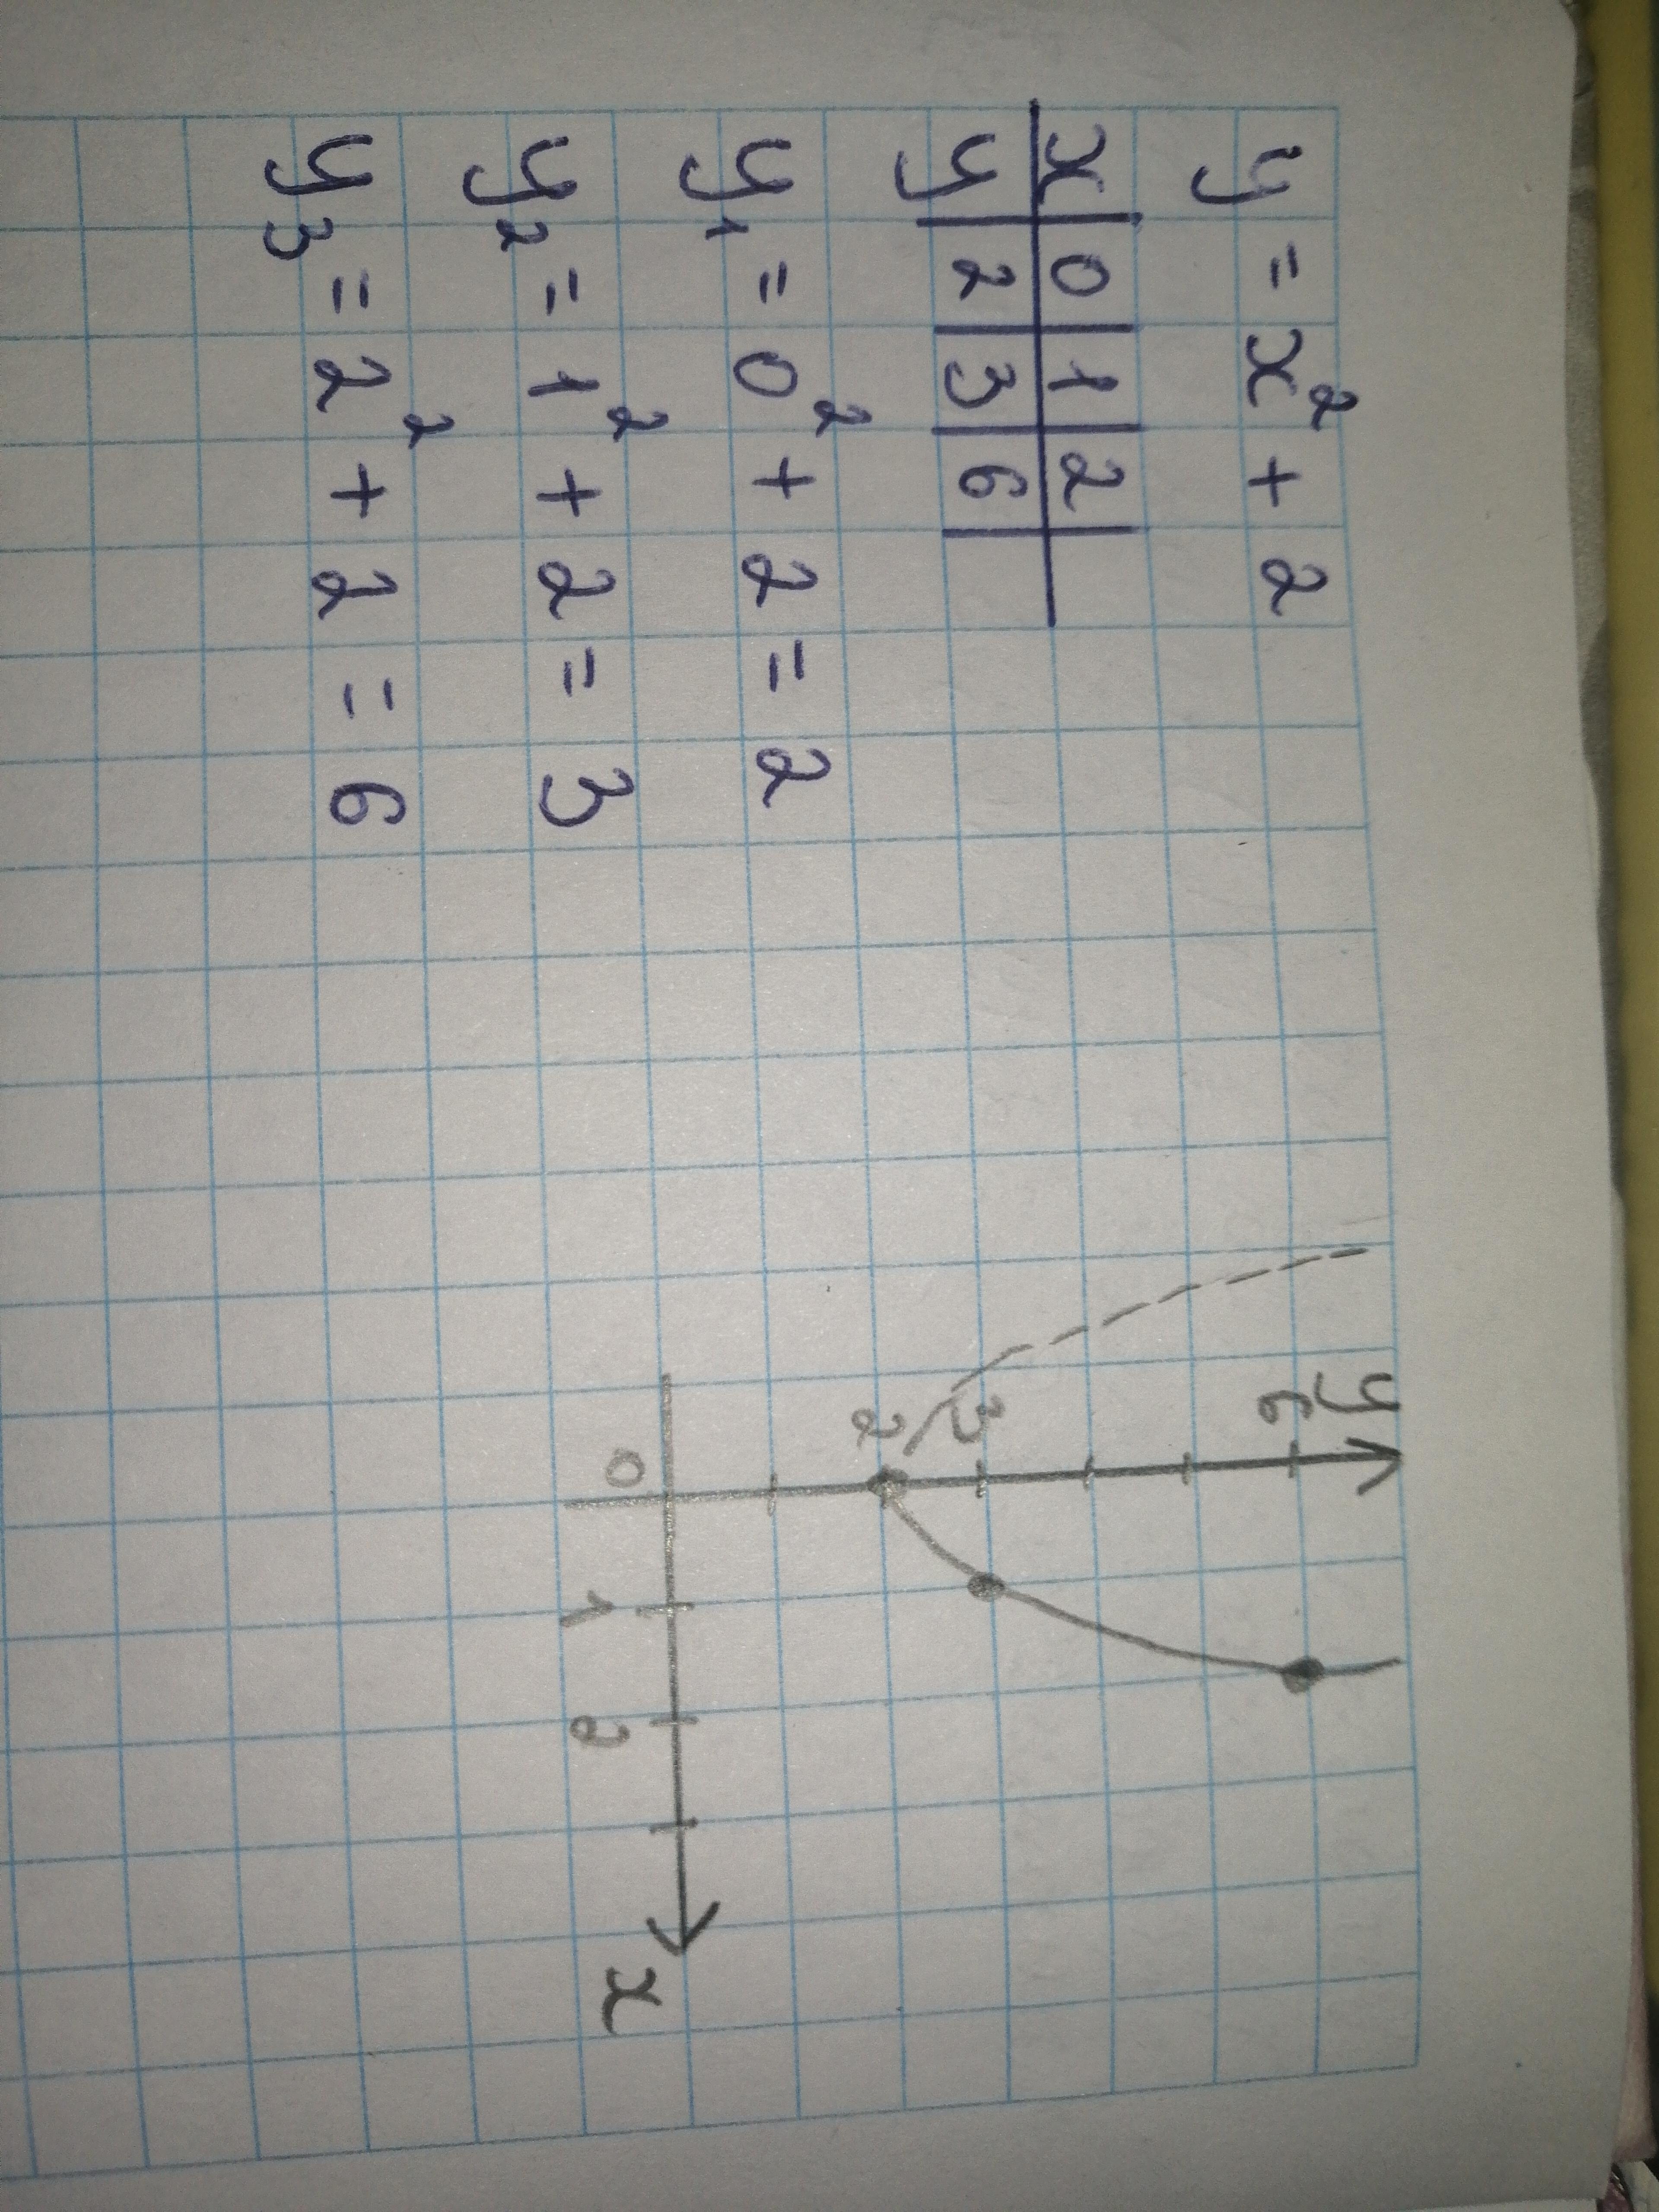 y = x² + 2
x 0 1 2
y 2 3 6
y₁ = 0² + 2 = 2
y₂ = 1² + 2 = 3
y₃ = 2² + 2 = 6
y
6
3
2
0 1 2 x